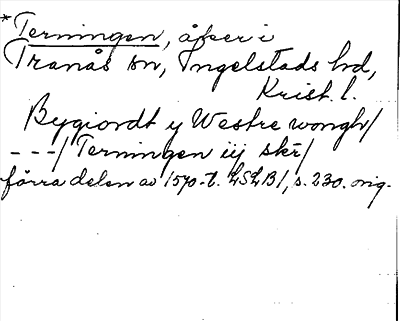 *Terningen, åker i
Tranås sn, Ingelstads hd,
Krist. l.
Bygiordt y Westre wongh/
---/Terningen iij skr/
förra delen av 1570-t. LSLB1, s. 230. orig.